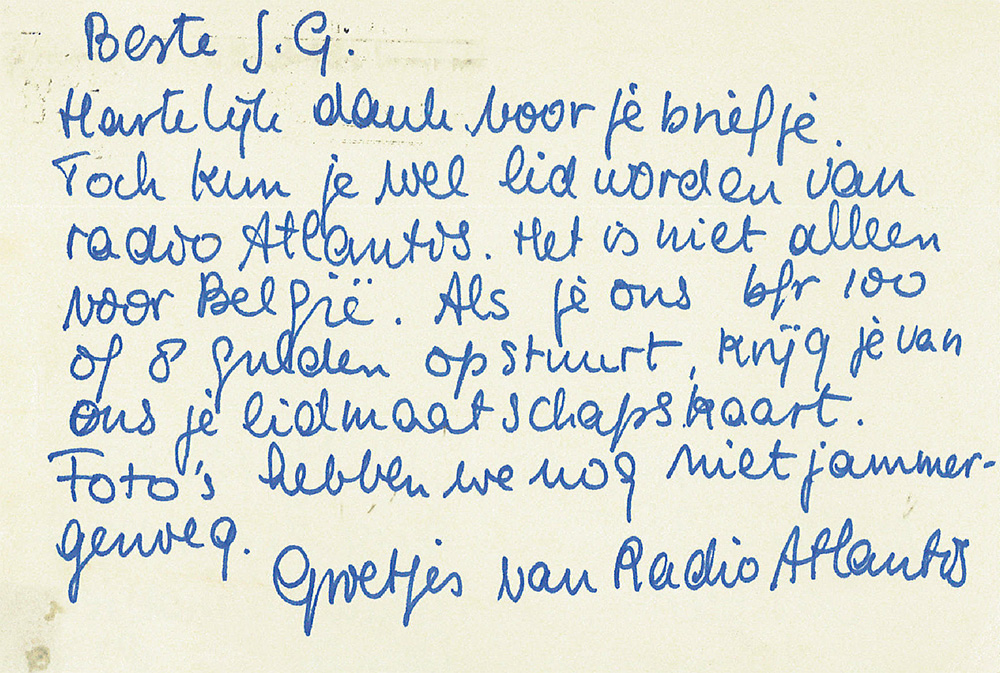 Beste J.G.
Hartelijk dank voor je briefje.
Toch kun je wel lid worden van
radio Atlantis. Het is niet alleen
voor België. Als je ons bfr 100
of 8 gulden opstuurt, krijg je van
ons je lidmaatschapskaart.
Foto's hebben we nog niet jammer-
genoeg.
Groetjes van Radio Atlantis